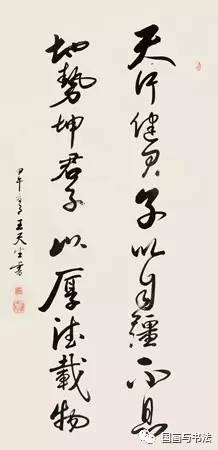 天行健君子以自疆不息
地勢坤君子以厚德載物
甲午年王天生書
国画与书法